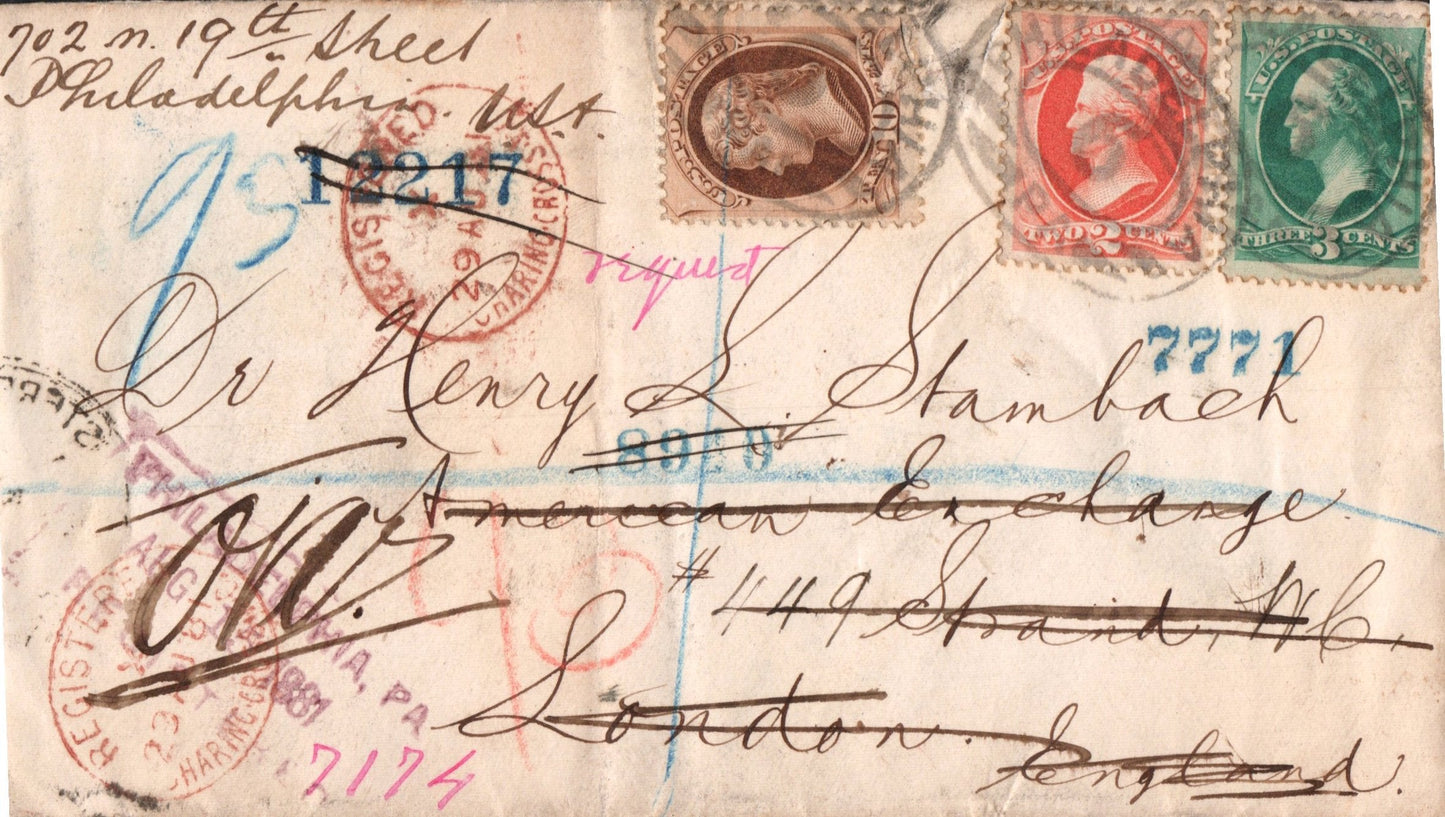 702 n. 19th Street
Philadelphia. U.S.A.
U.S. POSTAGE
10
U.S. POSTAGE
TWO 2 CENTS
U.S. POSTAGE
THREE 3 CENTS
95
12217
REGISTERED
29 AU
CHARING.CROSS
request
7771
Dr Henry L. Stambach
8910
American Exchange.
#449 Strand, W.C.
London.
England.
PHILADELPHIA, PA
AUG
1881
REGISTERED
29 AU
CHARING.CROSS
7174